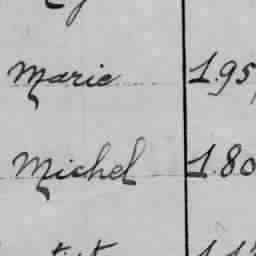 Marie 1.95
Michel 1.80